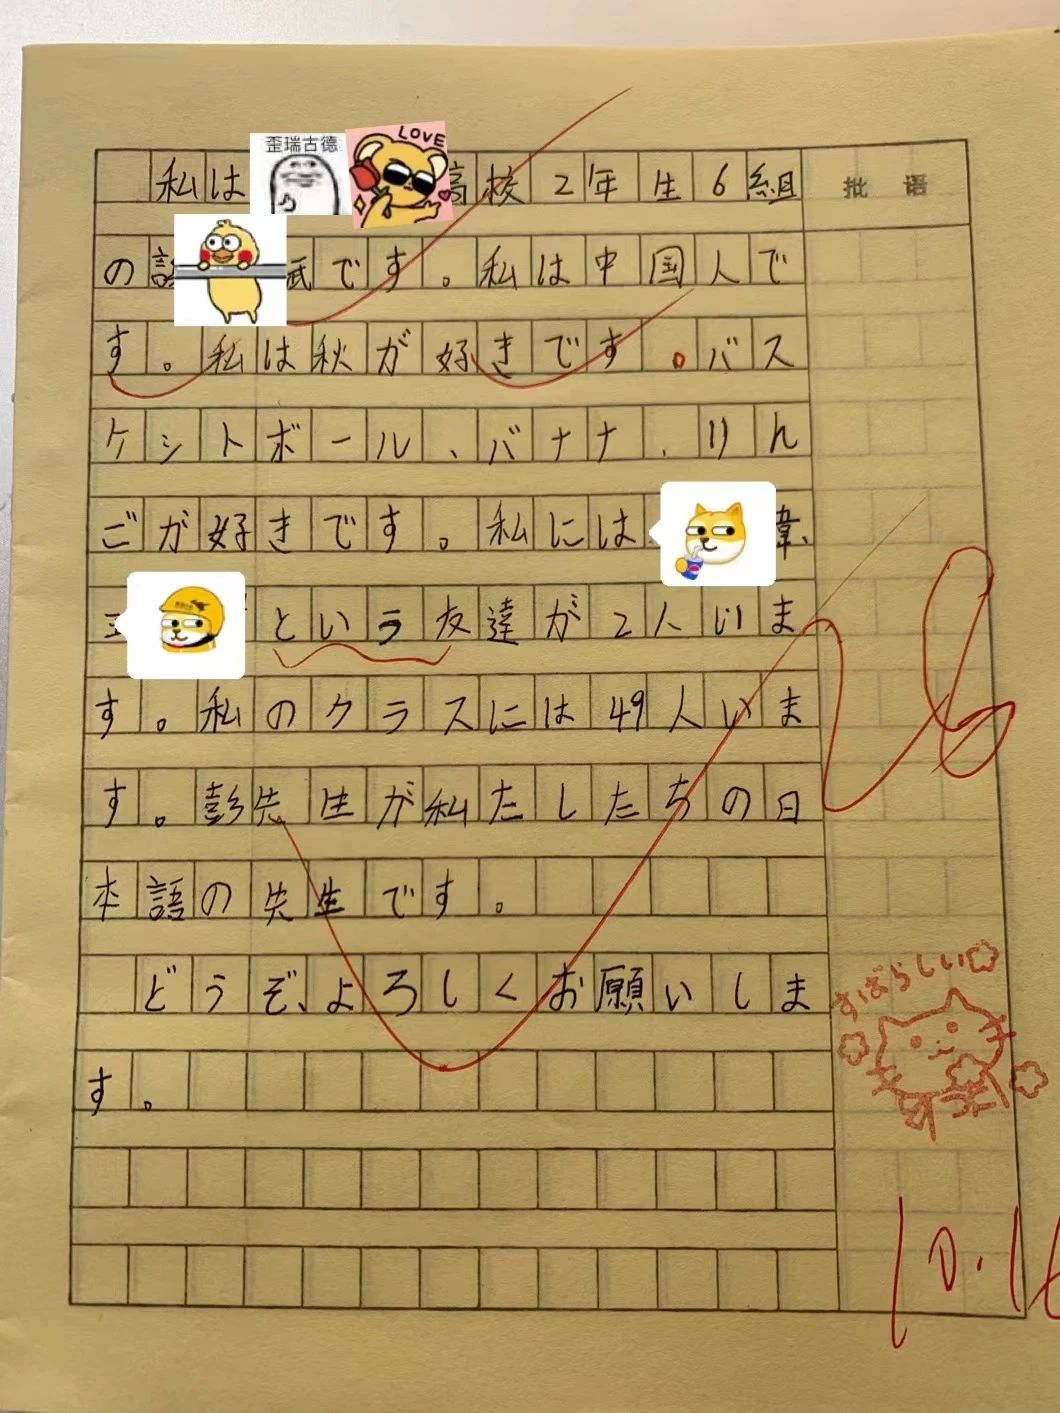 歪瑞古德
LOVE
私は高校2年生6組
批语
のです。私は中国人で
す。私は秋が好きです。バス
ケットボール、バナナ、りん
ごが好きです。私には
という友達が2人いま
す。私のクラスには49人いま
す。彭先生が私たしたちの日
本語の先生です。
どうぞ、よろしくお願いしま
す。
すばらしい
26
10.16